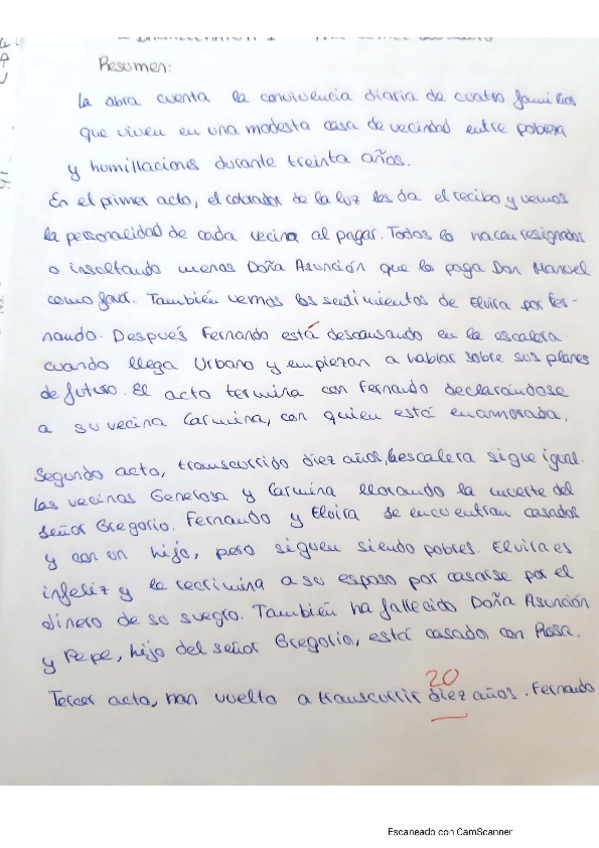 Resumen:
La obra cuenta la convivencia diaria de cuatro familias
que viven en una modesta casa de vecindad entre pobreza
y humillaciones durante treinta años.
En el primer acto, el cobrador de la luz les da el recibo y vemos
la personalidad de cada vecina al pagar. Todas lo hacen resignadas
o insultando menos Doña Asunción que la paga Don Manuel
como favor. También vemos los sentimientos de Elvira por Fer-
nando. Después Fernando está descansando en la escalera
cuando llega Urbano y empiezan a hablar sobre sus planes
de futuro. El acto termina con Fernando declarándose
a su vecina Carmina, con quien está enamorada.
Segundo acto, transcurrido diez años, la escalera sigue igual.
Las vecinas Generosa y Carmina llorando la muerte del
señor Gregorio. Fernando y Elvira se encuentran casados
y con un hijo, pero siguen siendo pobres. Elvira es
infeliz y le recrimina a su esposo por casarse por el
dinero de su suegro. También ha fallecido Doña Asunción
y Pepe, hijo del señor Gregorio, está casado con Rosa.
20
Tercer acto, han vuelto a transcurrir diez años. Fernando
Escaneado con CamScanner